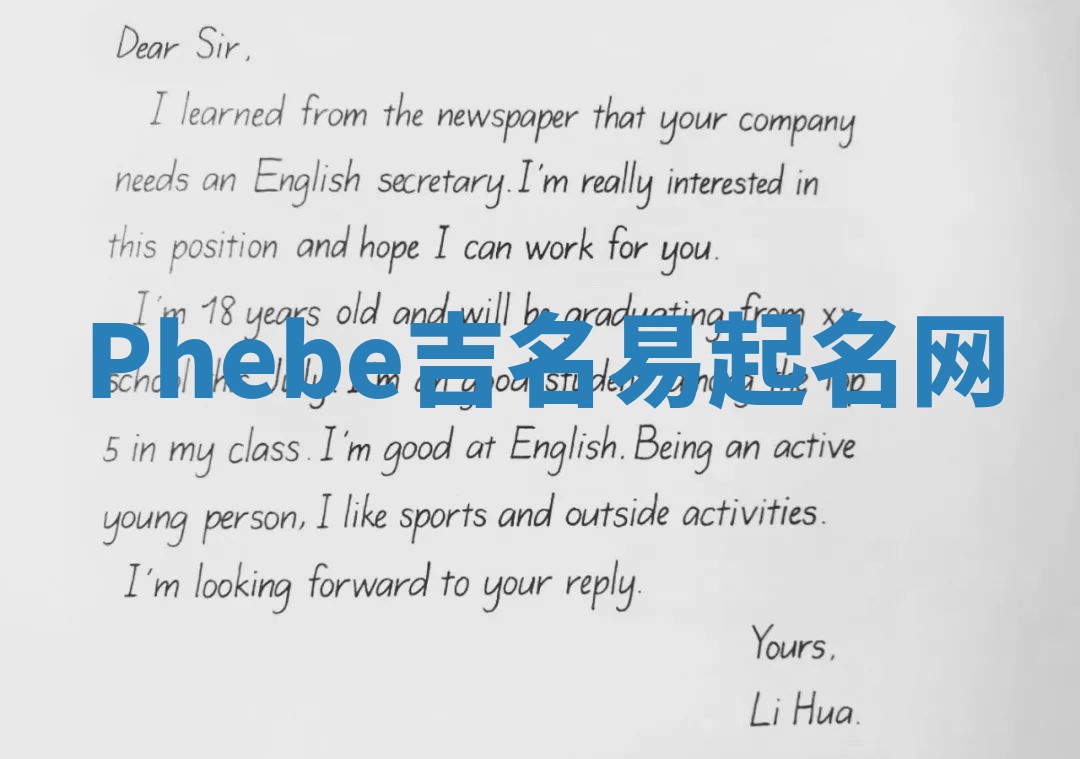 Dear Sir,
I learned from the newspaper that your company
needs an English secretary. I'm really interested in
this position and hope I can work for you.
I'm 18 years old and will be graduating from xx
Phebe吉名易起名网
school this July. I'm an good student among the Top
5 in my class. I'm good at English. Being an active
young person, I like sports and outside activities.
I'm looking forward to your reply.
Yours,
Li Hua.